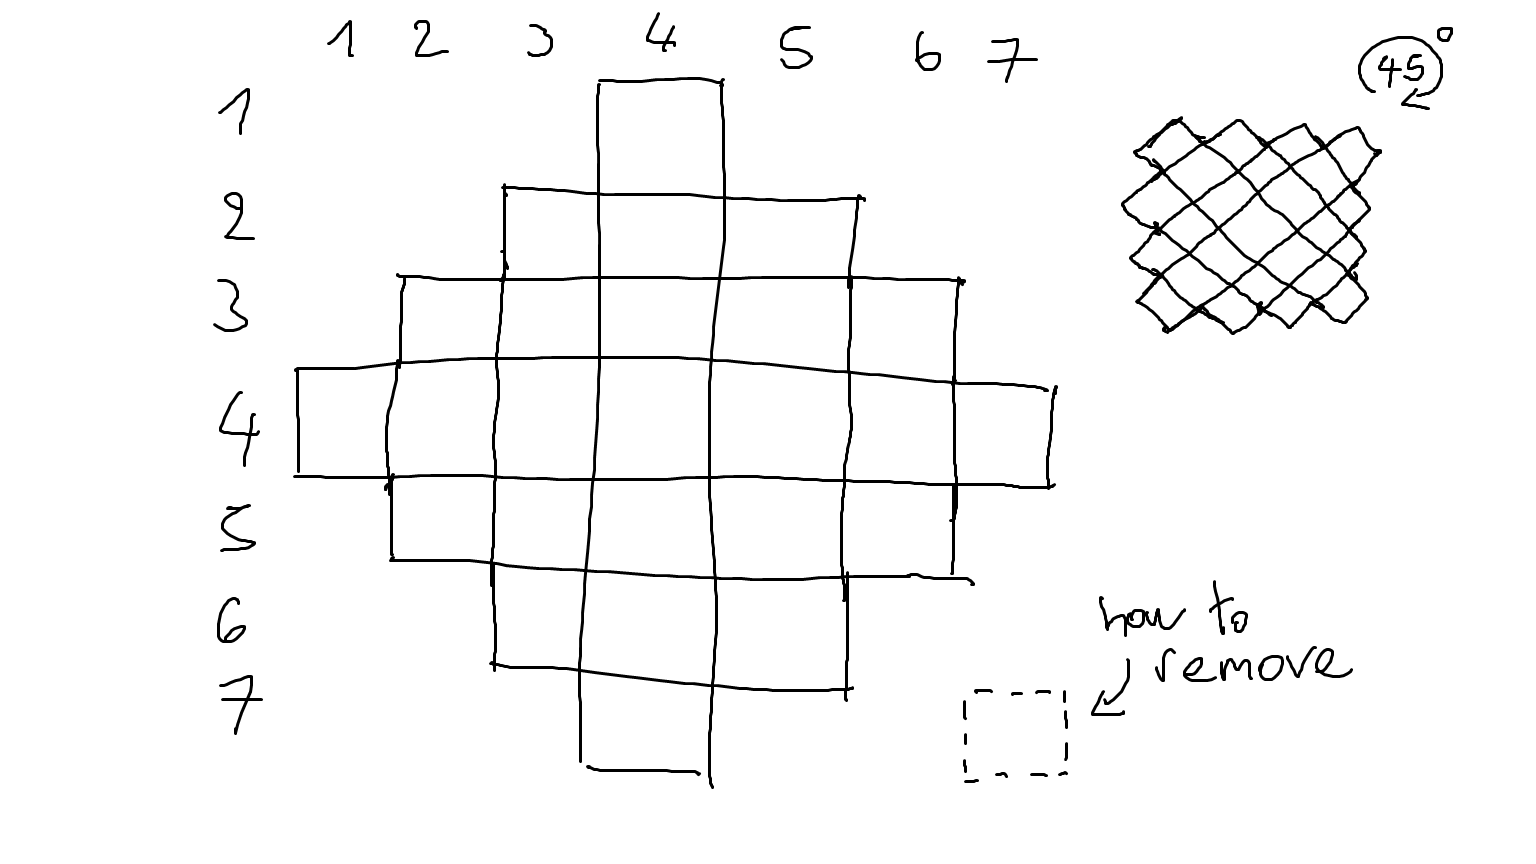 1 2 3 4 5 6 7
45°
1
2
3
4
5
6
7
how to
remove